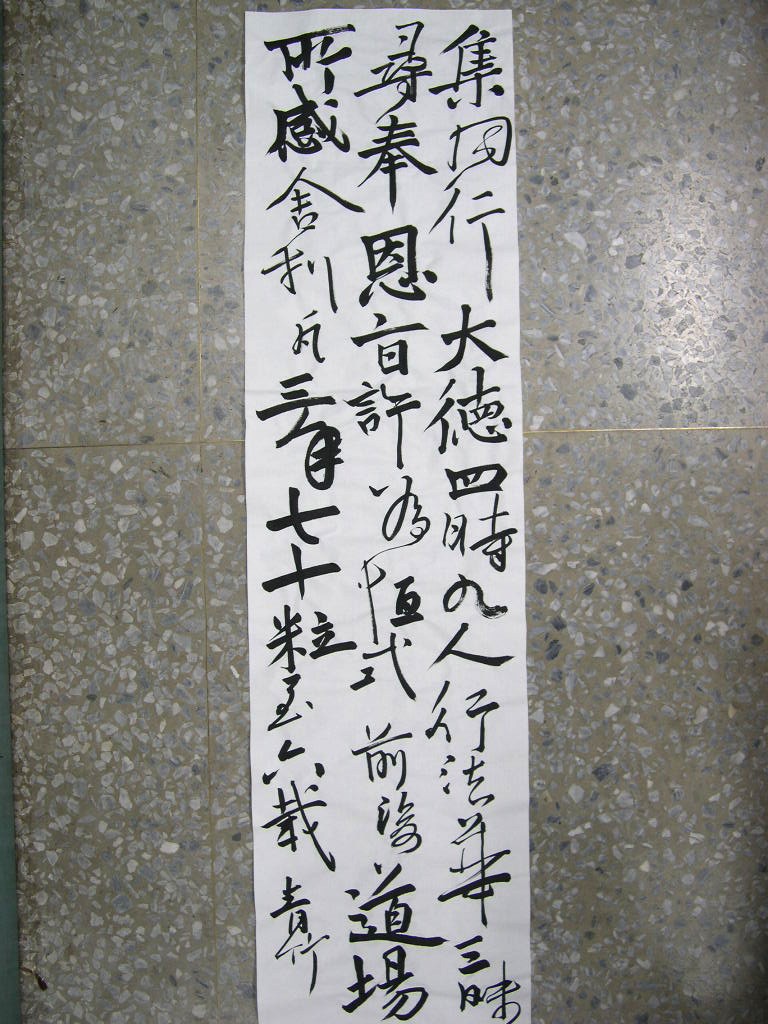 集同行大德四時九人行法華三昧
尋奉恩旨許為恒式前後道場
所感舍利凡三百七十粒至六載
青竹